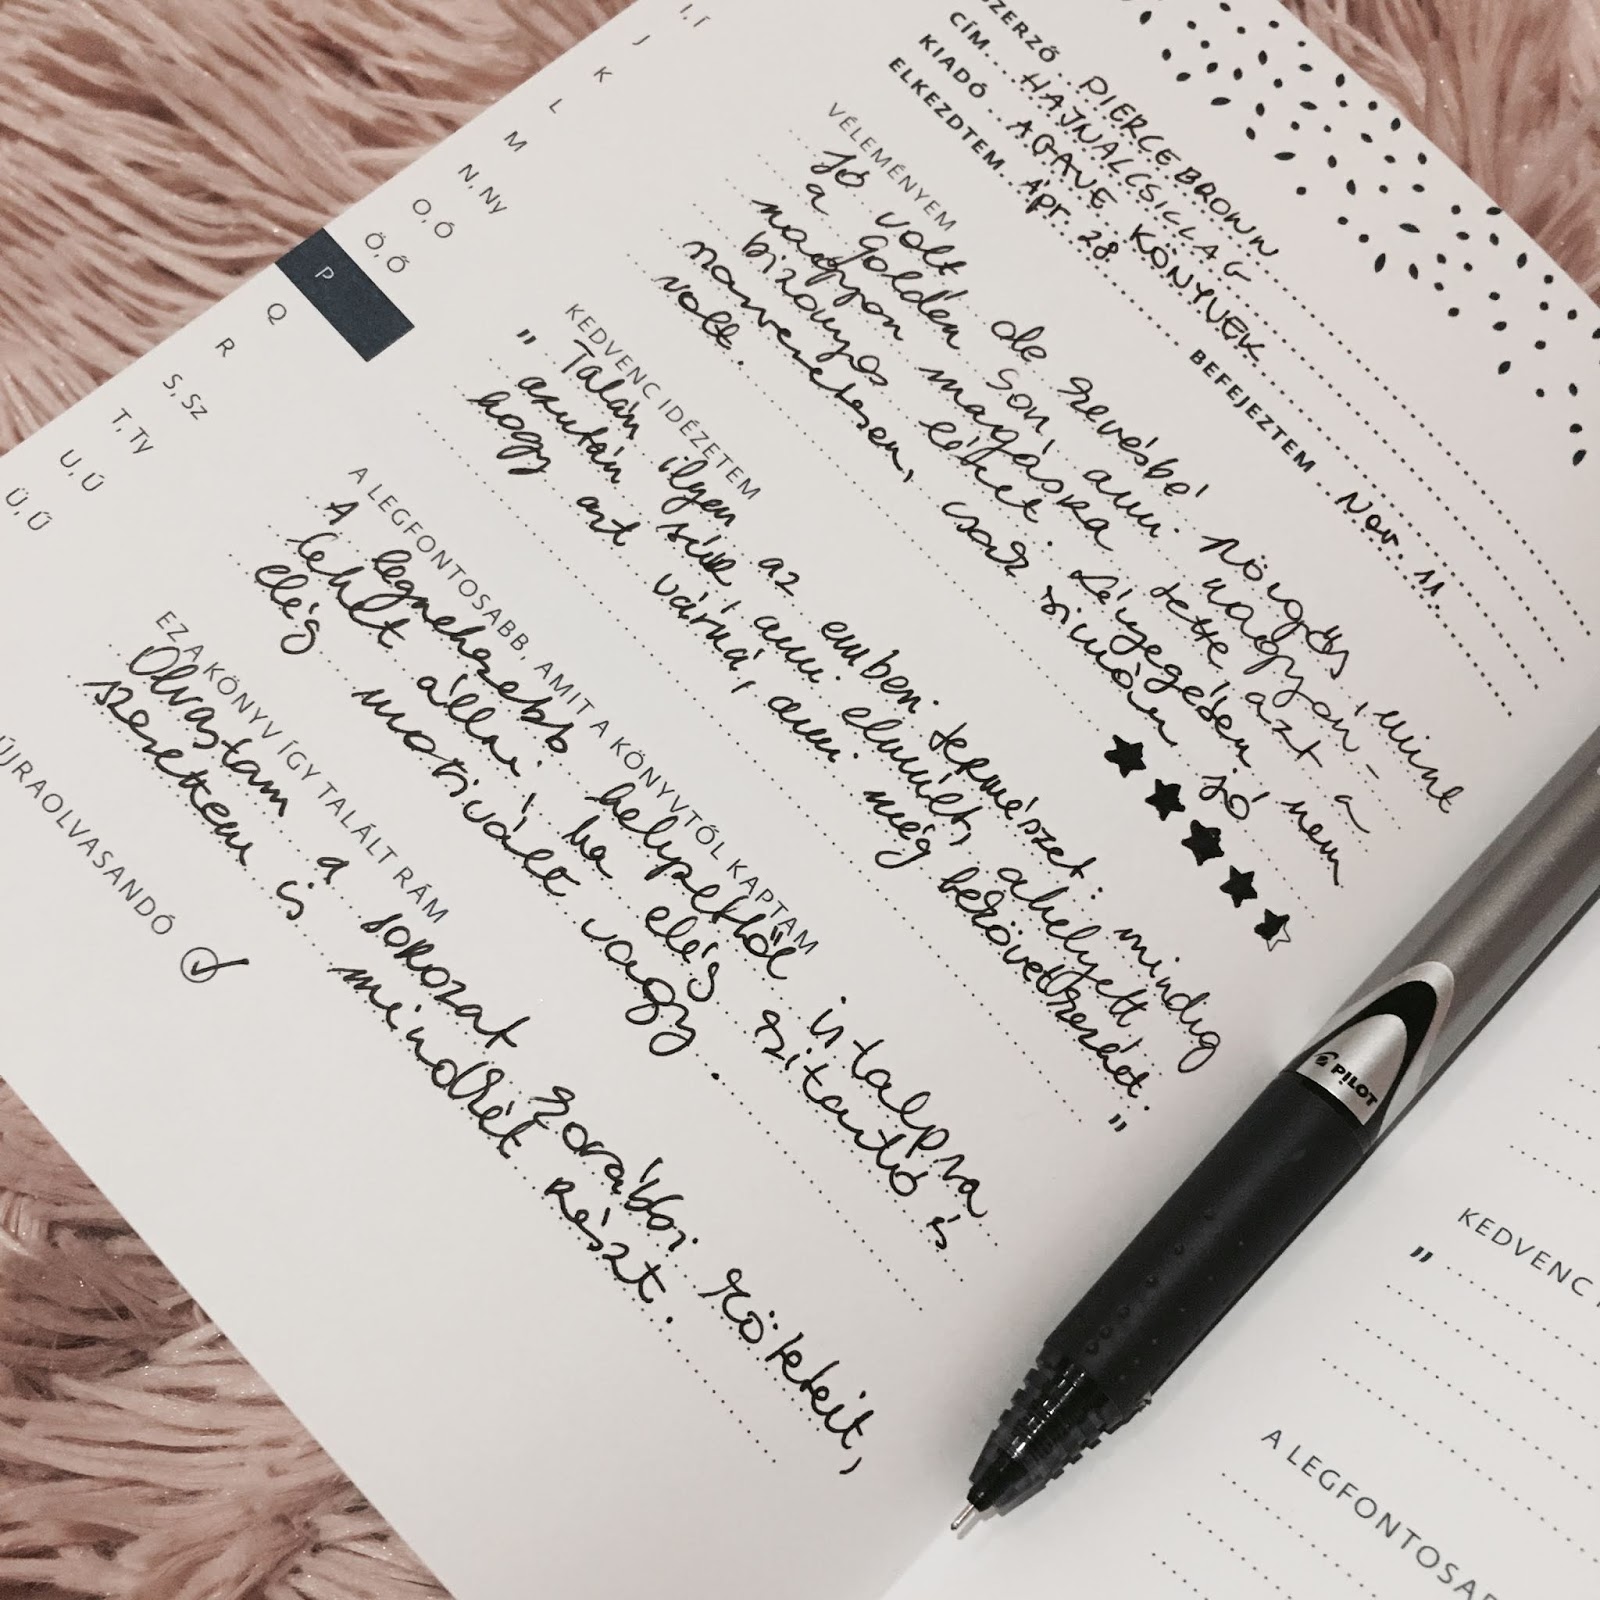 I, Í
J
K
L
M
N, Ny
O, Ó
Ö, Ő
P
Q
R
S, Sz
T, Ty
U, Ú
Ü, Ű
SZERZŐ PIERCE BROWN
CÍM HAJNALCSILLAG
KIADÓ AGAVE KÖNYVEK
ELKEZDTEM Ápr. 28 BEFEJEZTEM Nov. 11.
VÉLEMÉNYEM
Jó volt de kevésbé pörgős, mint
a Golden son, ami nagyon-
nagyon magasra tette azt a
bizonyos lécet. Lényegében nem
szarvezetesen, csak simán jó
volt.
KEDVENC IDÉZETEM
„Talán ilyen az emberi természet: mindig
azután sírunk, ami elmúlt, ahelyett,
hogy azt várná, ami még bekövetkezhet."
A LEGFONTOSABB, AMIT A KÖNYVTŐL KAPTAM
A legnehezebb helyzetből is talpra
lehet állni, ha elég kitartó és
elég motivált vagy.
EZ A KÖNYV ÍGY TALÁLT RÁM
Olvastam a sorozat korábbi köteteit,
szerettem is mindkét részt.
ÚJRAOLVASANDÓ
PILOT
KEDVENC
„
A LEGFONTOSAB